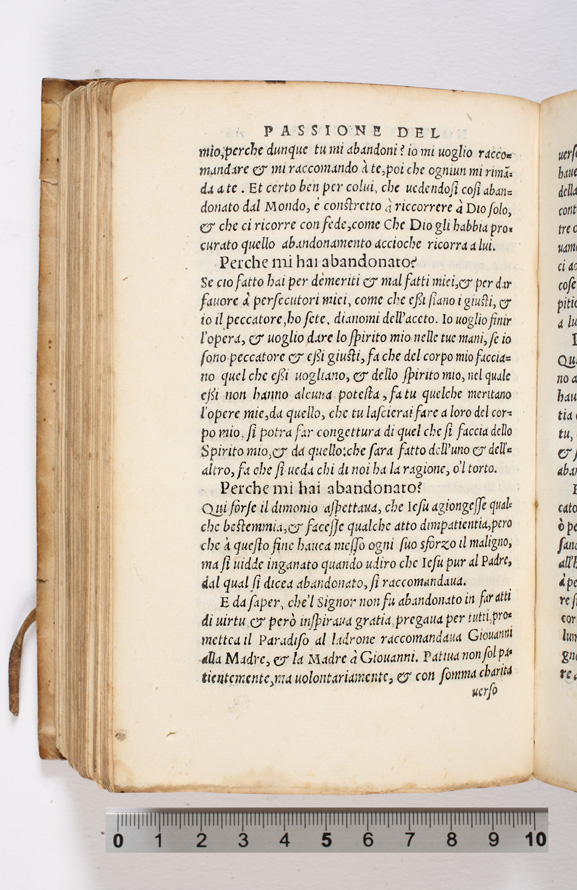 PASSIONE DEL
mio, perche dunque tu mi abandoni? io mi uoglio racco=
mandare & mi raccomando à te, poi che ogniun mi rimã=
da a te. Et certo ben per colui, che uedendosi cosi aban=
donato dal Mondo, è constretto à riccorrere à Dio solo,
& che ci ricorre con fede, come Che Dio gli habbia pro=
curato quello abandonamento accioche ricorra a lui.
Perche mi hai abandonato?
Se cio fatto hai per demeriti & mal fatti miei, & per dar
fauore à persecutori miei, come che eßi siano i giusti, &
io il peccatore, ho sete, dianomi dell'aceto. Io uoglio finir
l'opera, & uoglio dare lo spirito mio nelle tue mani, se io
sono peccatore & eßi giusti, fa che del corpo mio faccia=
no quel che eßi uogliano, & dello spirito mio, nel quale
eßi non hanno alcuna potesta, fa tu quelche meritano
l'opere mie, da quello, che tu lascierai fare a loro del cor=
po mio, si potra far congettura di quel che si faccia dello
Spirito mio, & da quello: che sara fatto dell'uno & dell'=
altro, fa che si ueda chi di noi ha la ragione, o'l torto.
Perche mi hai abandonato?
Qui forse il dimonio aspettaua, che Iesu agiongesse qual=
che bestemmia, & facesse qualche atto dimpatientia, pero
che à questo fine hauea messo ogni suo sforzo il maligno,
ma si uidde inganato quando udiro che Iesu pur al Padre,
dal qual si dicea abandonato, si raccomandaua.
E da saper, che'l Signor non fu abandonato in far atti
di uirtu & però inspiraua gratia, pregaua per tutti, pro=
mettea il Paradiso al ladrone raccomandaua Giouanni
alla Madre, & la Madre à Giouanni. Patiua non sol pa=
tientemente, ma uolontariamente, & con somma charita
uerso
0 1 2 3 4 5 6 7 8 9 10